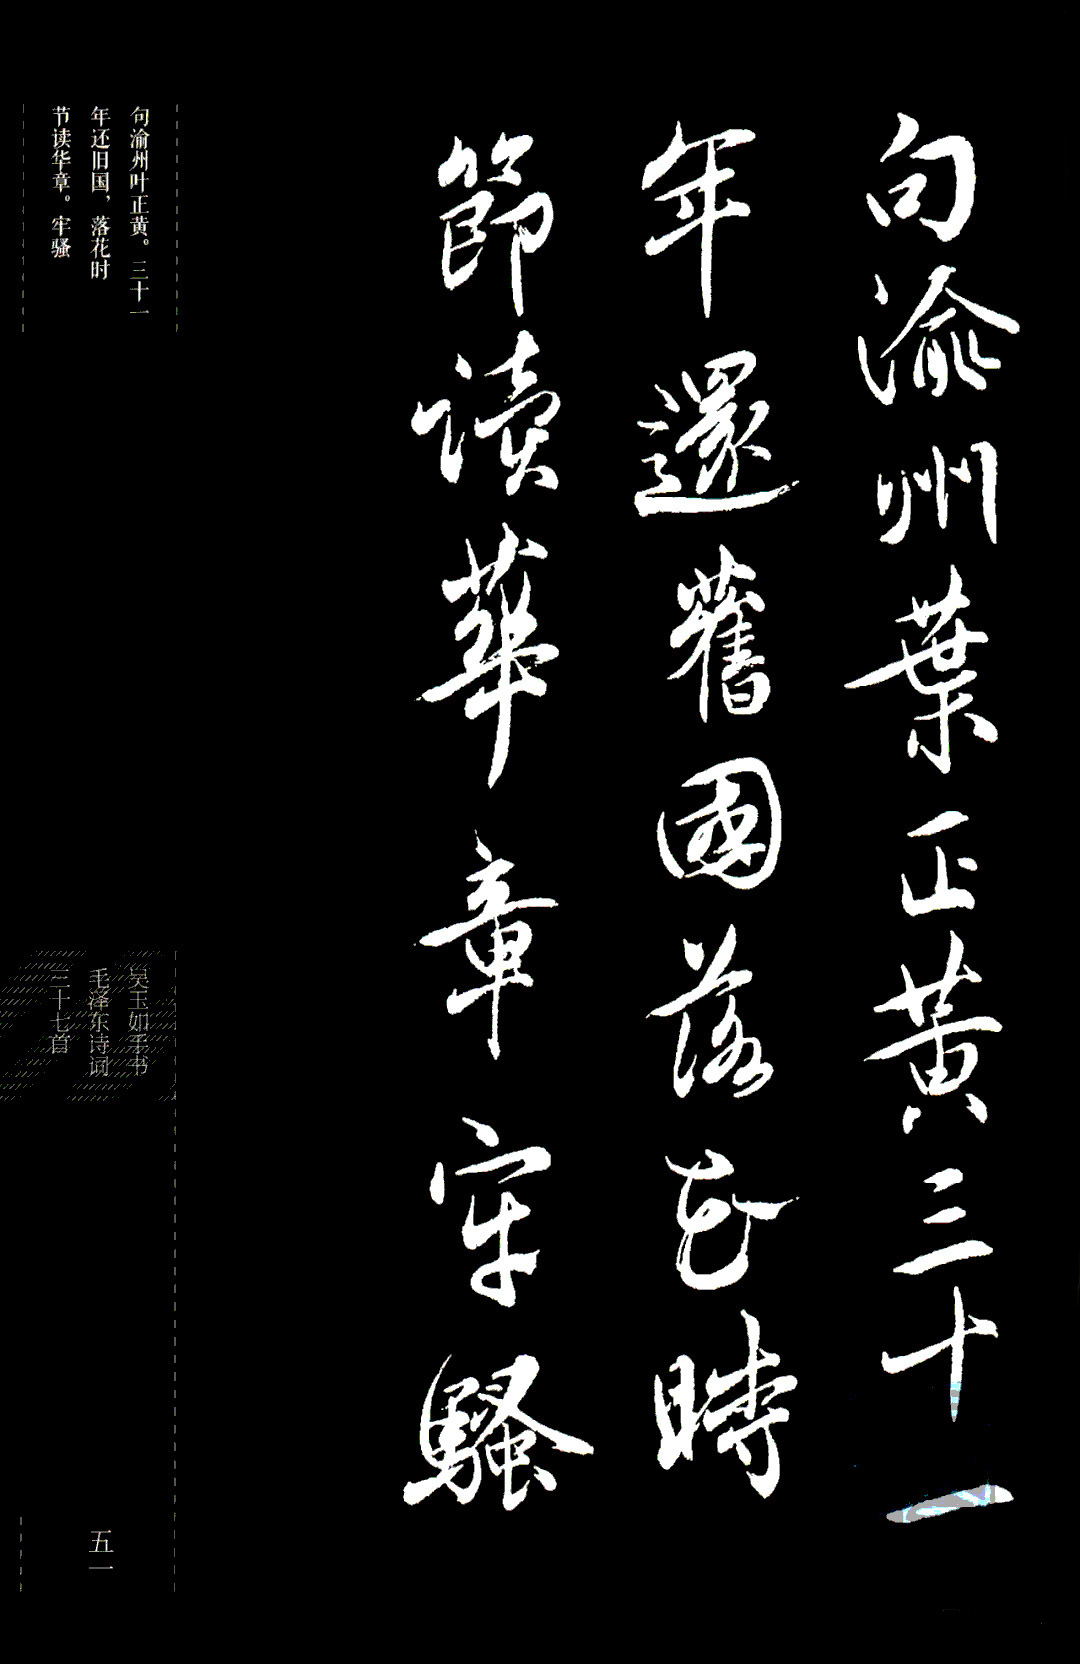 句渝州葉正黃三十一
年還舊國落花時
節讀華章牢騷
句渝州叶正黄。三十一
年还旧国，落花时
节读华章。牢骚
吴玉如手书
毛泽东诗词
三十七首
五一